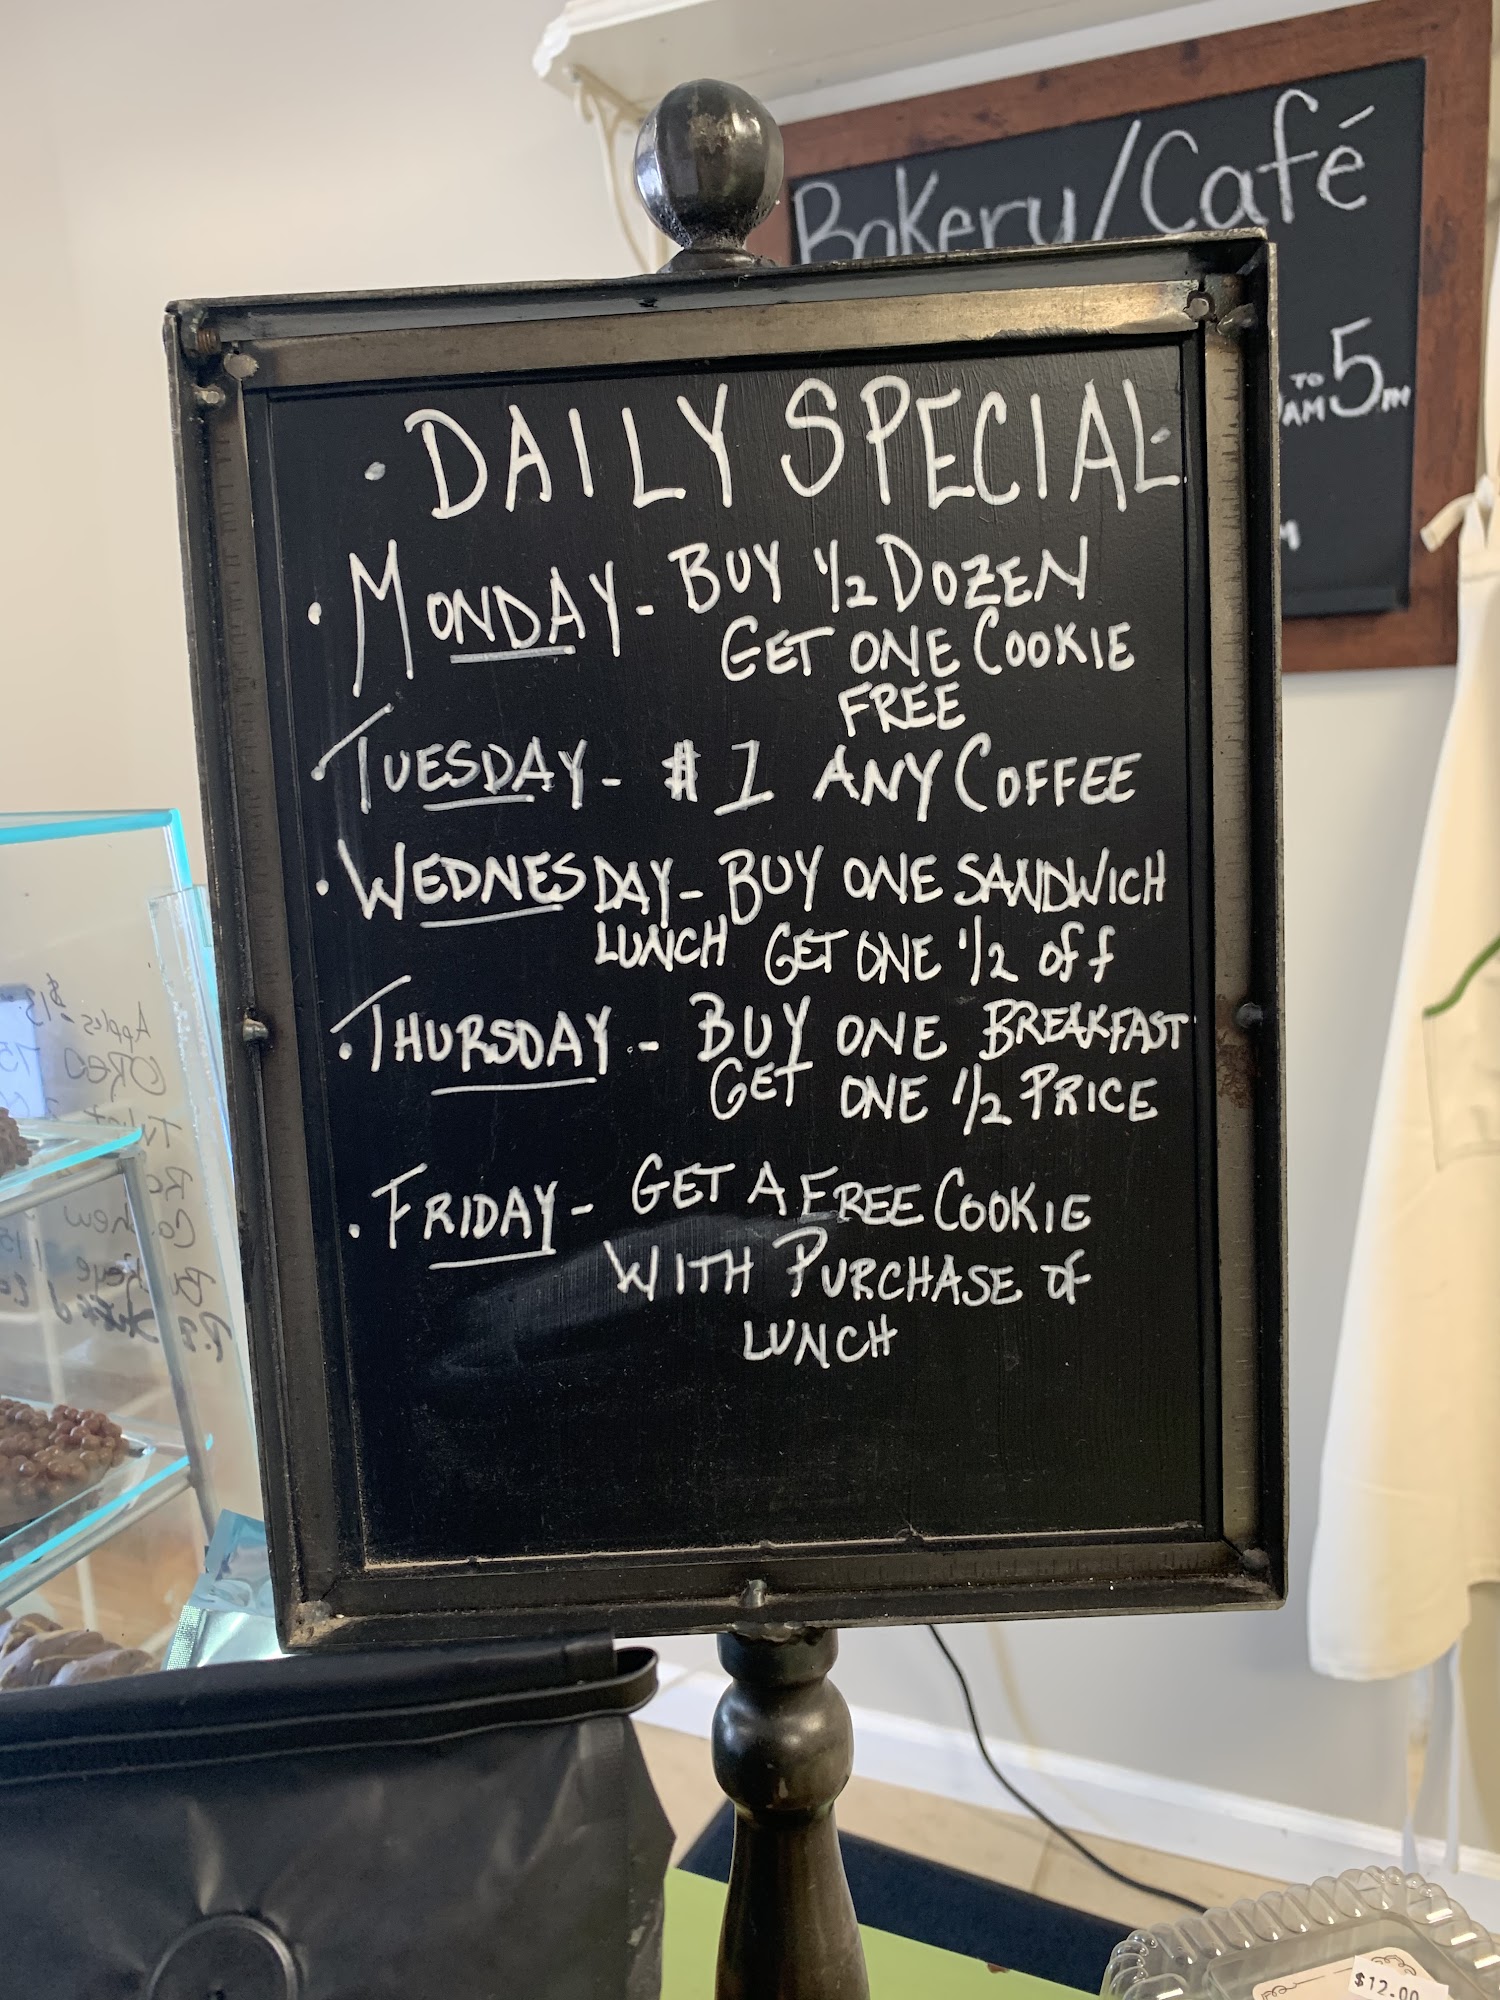 Bakery/Café
TO
AM 5PM
· DAILY SPECIAL ·
· MONDAY - BUY 1/2 DOZEN
GET ONE COOKIE
FREE
· TUESDAY - $1 ANY COFFEE
· WEDNESDAY - BUY ONE SANDWICH
LUNCH GET ONE 1/2 off
· THURSDAY - BUY ONE BREAKFAST
GET ONE 1/2 PRICE
· FRIDAY - GET A FREE COOKIE
WITH PURCHASE OF
LUNCH
Apples
OREO
$12.00